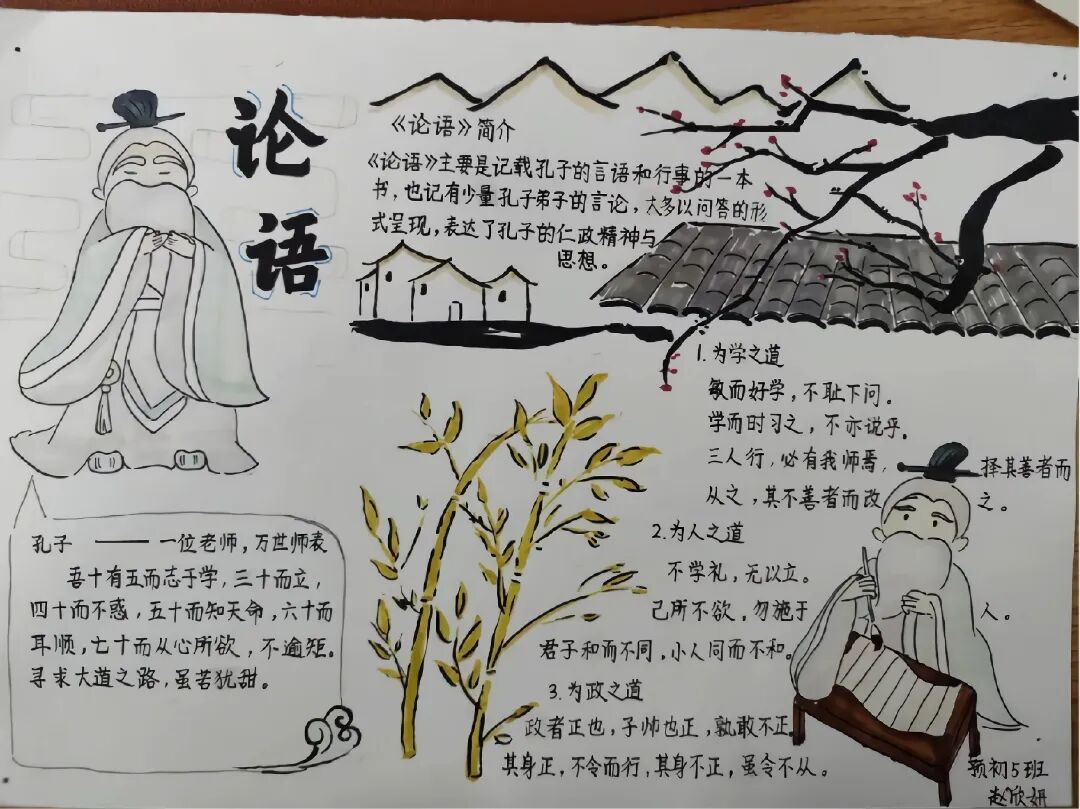 论语
《论语》简介
《论语》主要是记载孔子的言语和行事的一本
书，也记有少量孔子弟子的言论，大多以问答的形
式呈现，表达了孔子的仁政精神与
思想。
孔子 —— 一位老师，万世师表
吾十有五而志于学，三十而立，
四十而不惑，五十而知天命，六十而
耳顺，七十而从心所欲，不逾矩。
寻求大道之路，虽苦犹甜。
1.为学之道
敏而好学，不耻下问。
学而时习之，不亦说乎。
三人行，必有我师焉，择其善者而
从之，其不善者而改之。
2.为人之道
不学礼，无以立。
己所不欲，勿施于人。
君子和而不同，小人同而不和。
3.为政之道
政者正也，子帅也正，孰敢不正。
其身正，不令而行，其身不正，虽令不从。
预初5班
赵欣妍